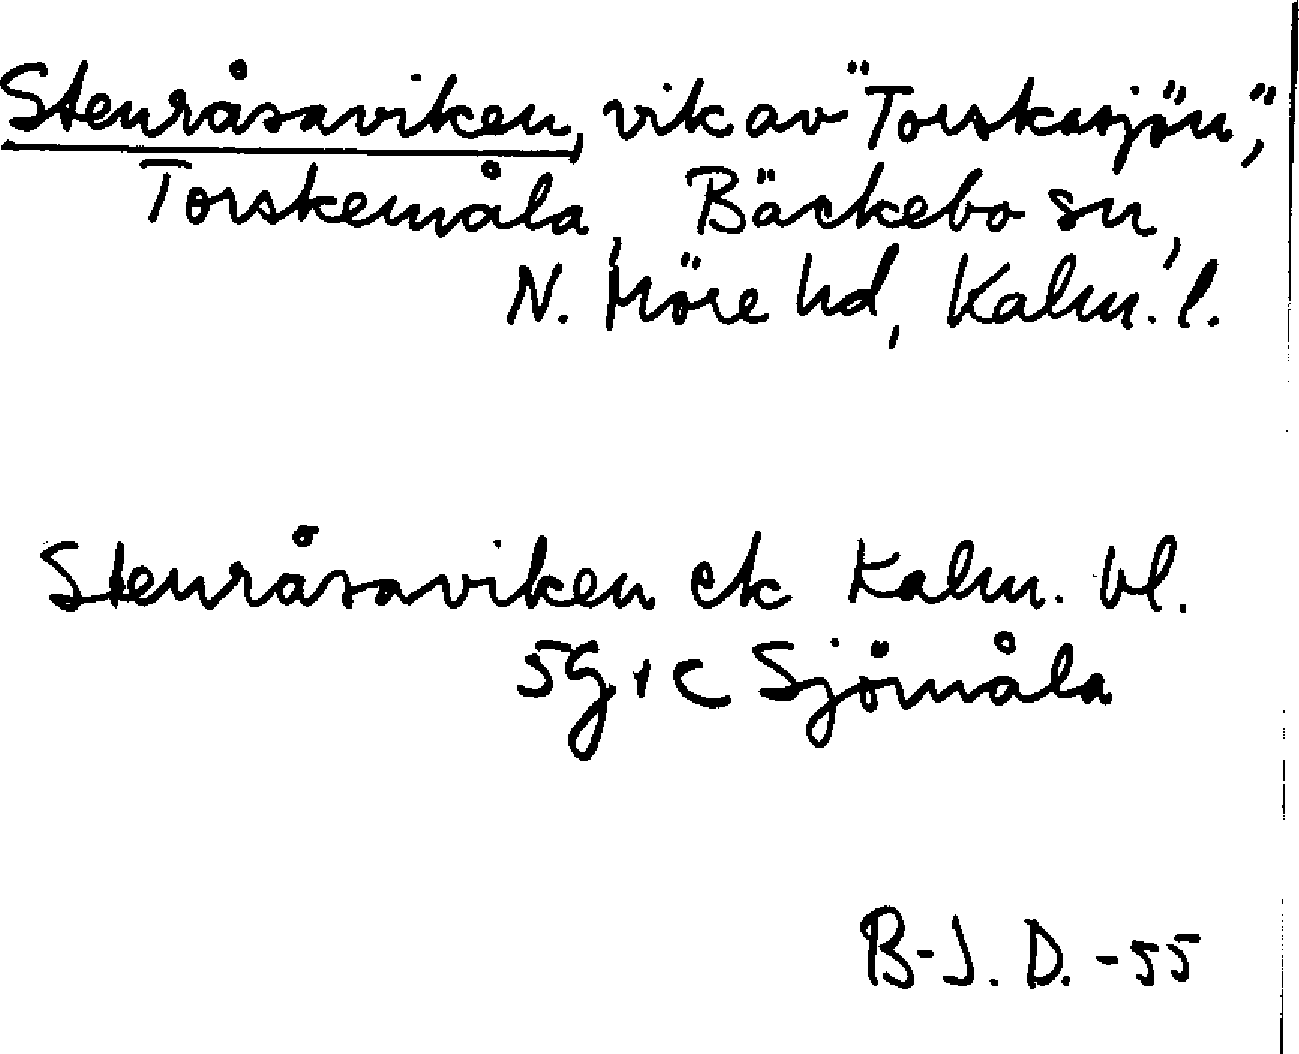 Stenråsaviken, vik av "Torskasjön",
Torskemåla, Bäckebo sn,
N. Möre hd, Kalm. l.
Stenråsaviken ek Kalm. bl.
5G, C Sjömåla
B-J. D. -55